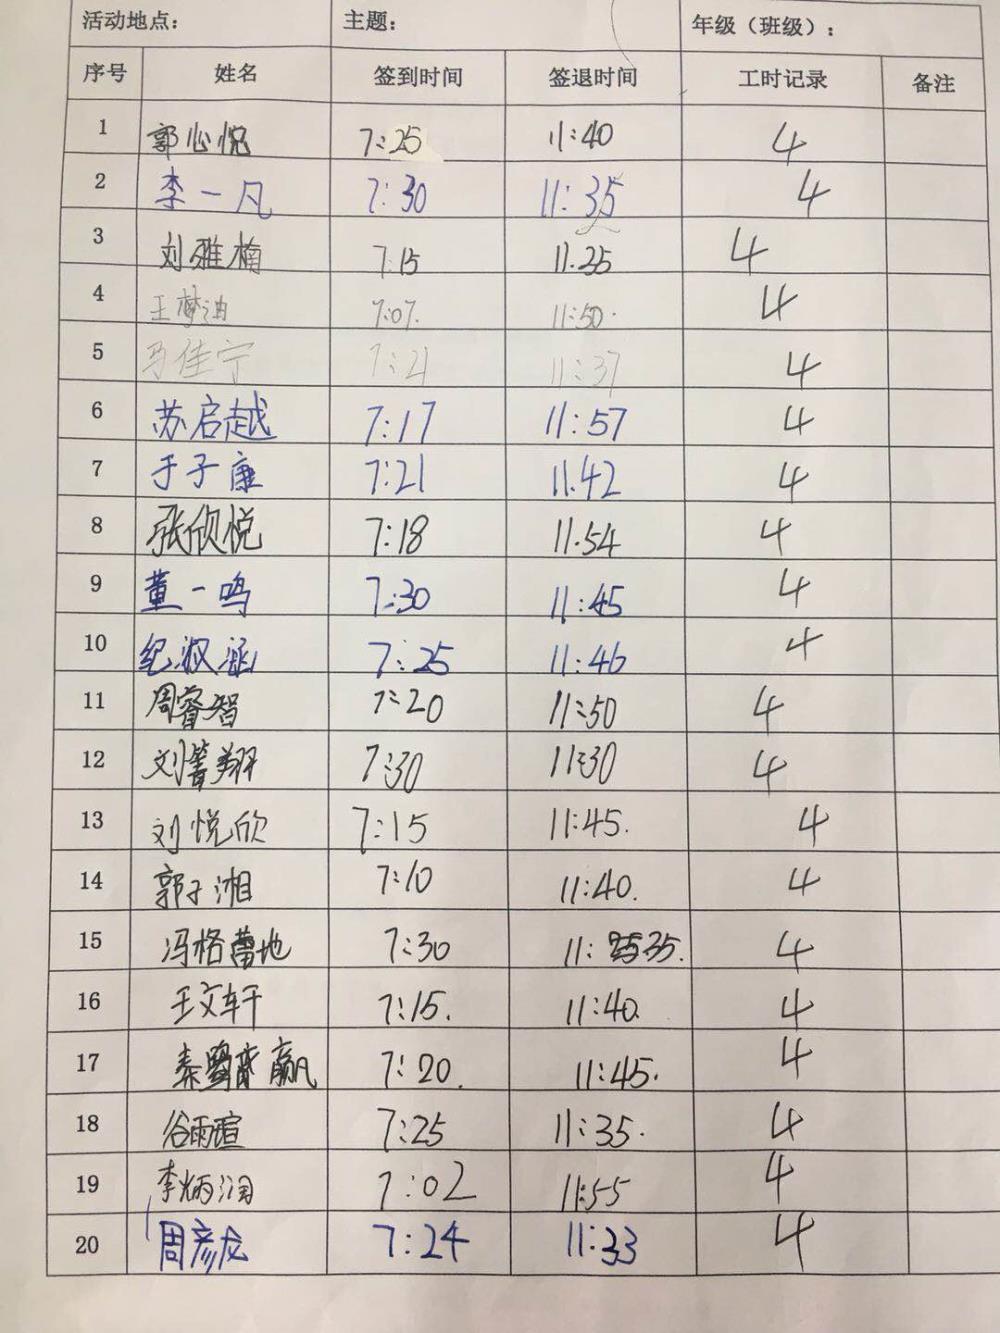 活动地点： 主题： 年级（班级）：
序号 姓名 签到时间 签退时间 工时记录 备注
1 郭心悦 7:25 11:40 4
2 李一凡 7:30 11:35 4
3 刘雅楠 7:15 11.25 4
4 王梦迪 7:07. 11:50. 4
5 马佳宁 7:21 11:37 4
6 苏启越 7:17 11:57 4
7 于子康 7:21 11.42 4
8 张欣悦 7:18 11.54 4
9 董一鸣 7:30 11:45 4
10 纪淑涵 7:25 11:46 4
11 周睿智 7:20 11:50 4
12 刘箐翔 7:30 11:30 4
13 刘悦欣 7:15 11:45. 4
14 郭子湘 7:10 11:40. 4
15 冯格蕾地 7:30 11: 35. 4
16 王文轩 7:15. 11:40. 4
17 秦 赢 7:20. 11:45. 4
18 谷雨暄 7:25 11:35. 4
19 李炳润 7:02 11:55 4
20 周彦龙 7:24 11:33 4